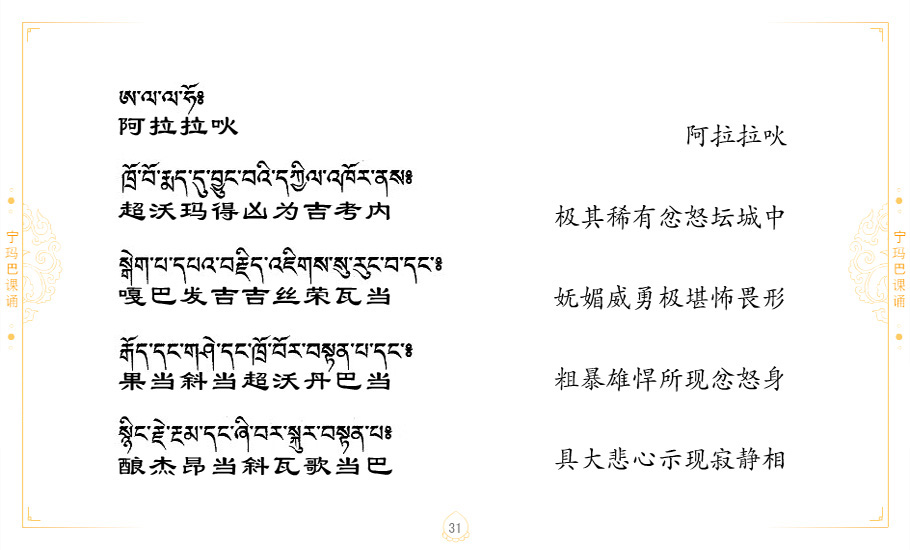 ཨ་ལ་ལ་ཧོ༔
阿拉拉吙
阿拉拉吙
ཁྲོ་བོ་རྨད་དུ་བྱུང་བའི་དཀྱིལ་འཁོར་ནས༔
超沃玛得凶为吉考内
极其稀有忿怒坛城中
སྒེག་པ་དཔའ་བརྗིད་འཇིགས་སུ་རུང་བ་དང་༔
嘎巴发吉吉丝荣瓦当
妩媚威勇极堪怖畏形
རྒོད་དང་གཤེ་དང་ཁྲོ་བོར་བསྟན་པ་དང་༔
果当斜当超沃丹巴当
粗暴雄悍所现忿怒身
སྙིང་རྗེ་རྔམ་དང་ཞི་བར་སྐུར་བསྟན་པ༔
酿杰昂当斜瓦歌当巴
具大悲心示现寂静相
宁玛巴课诵
宁玛巴课诵
31